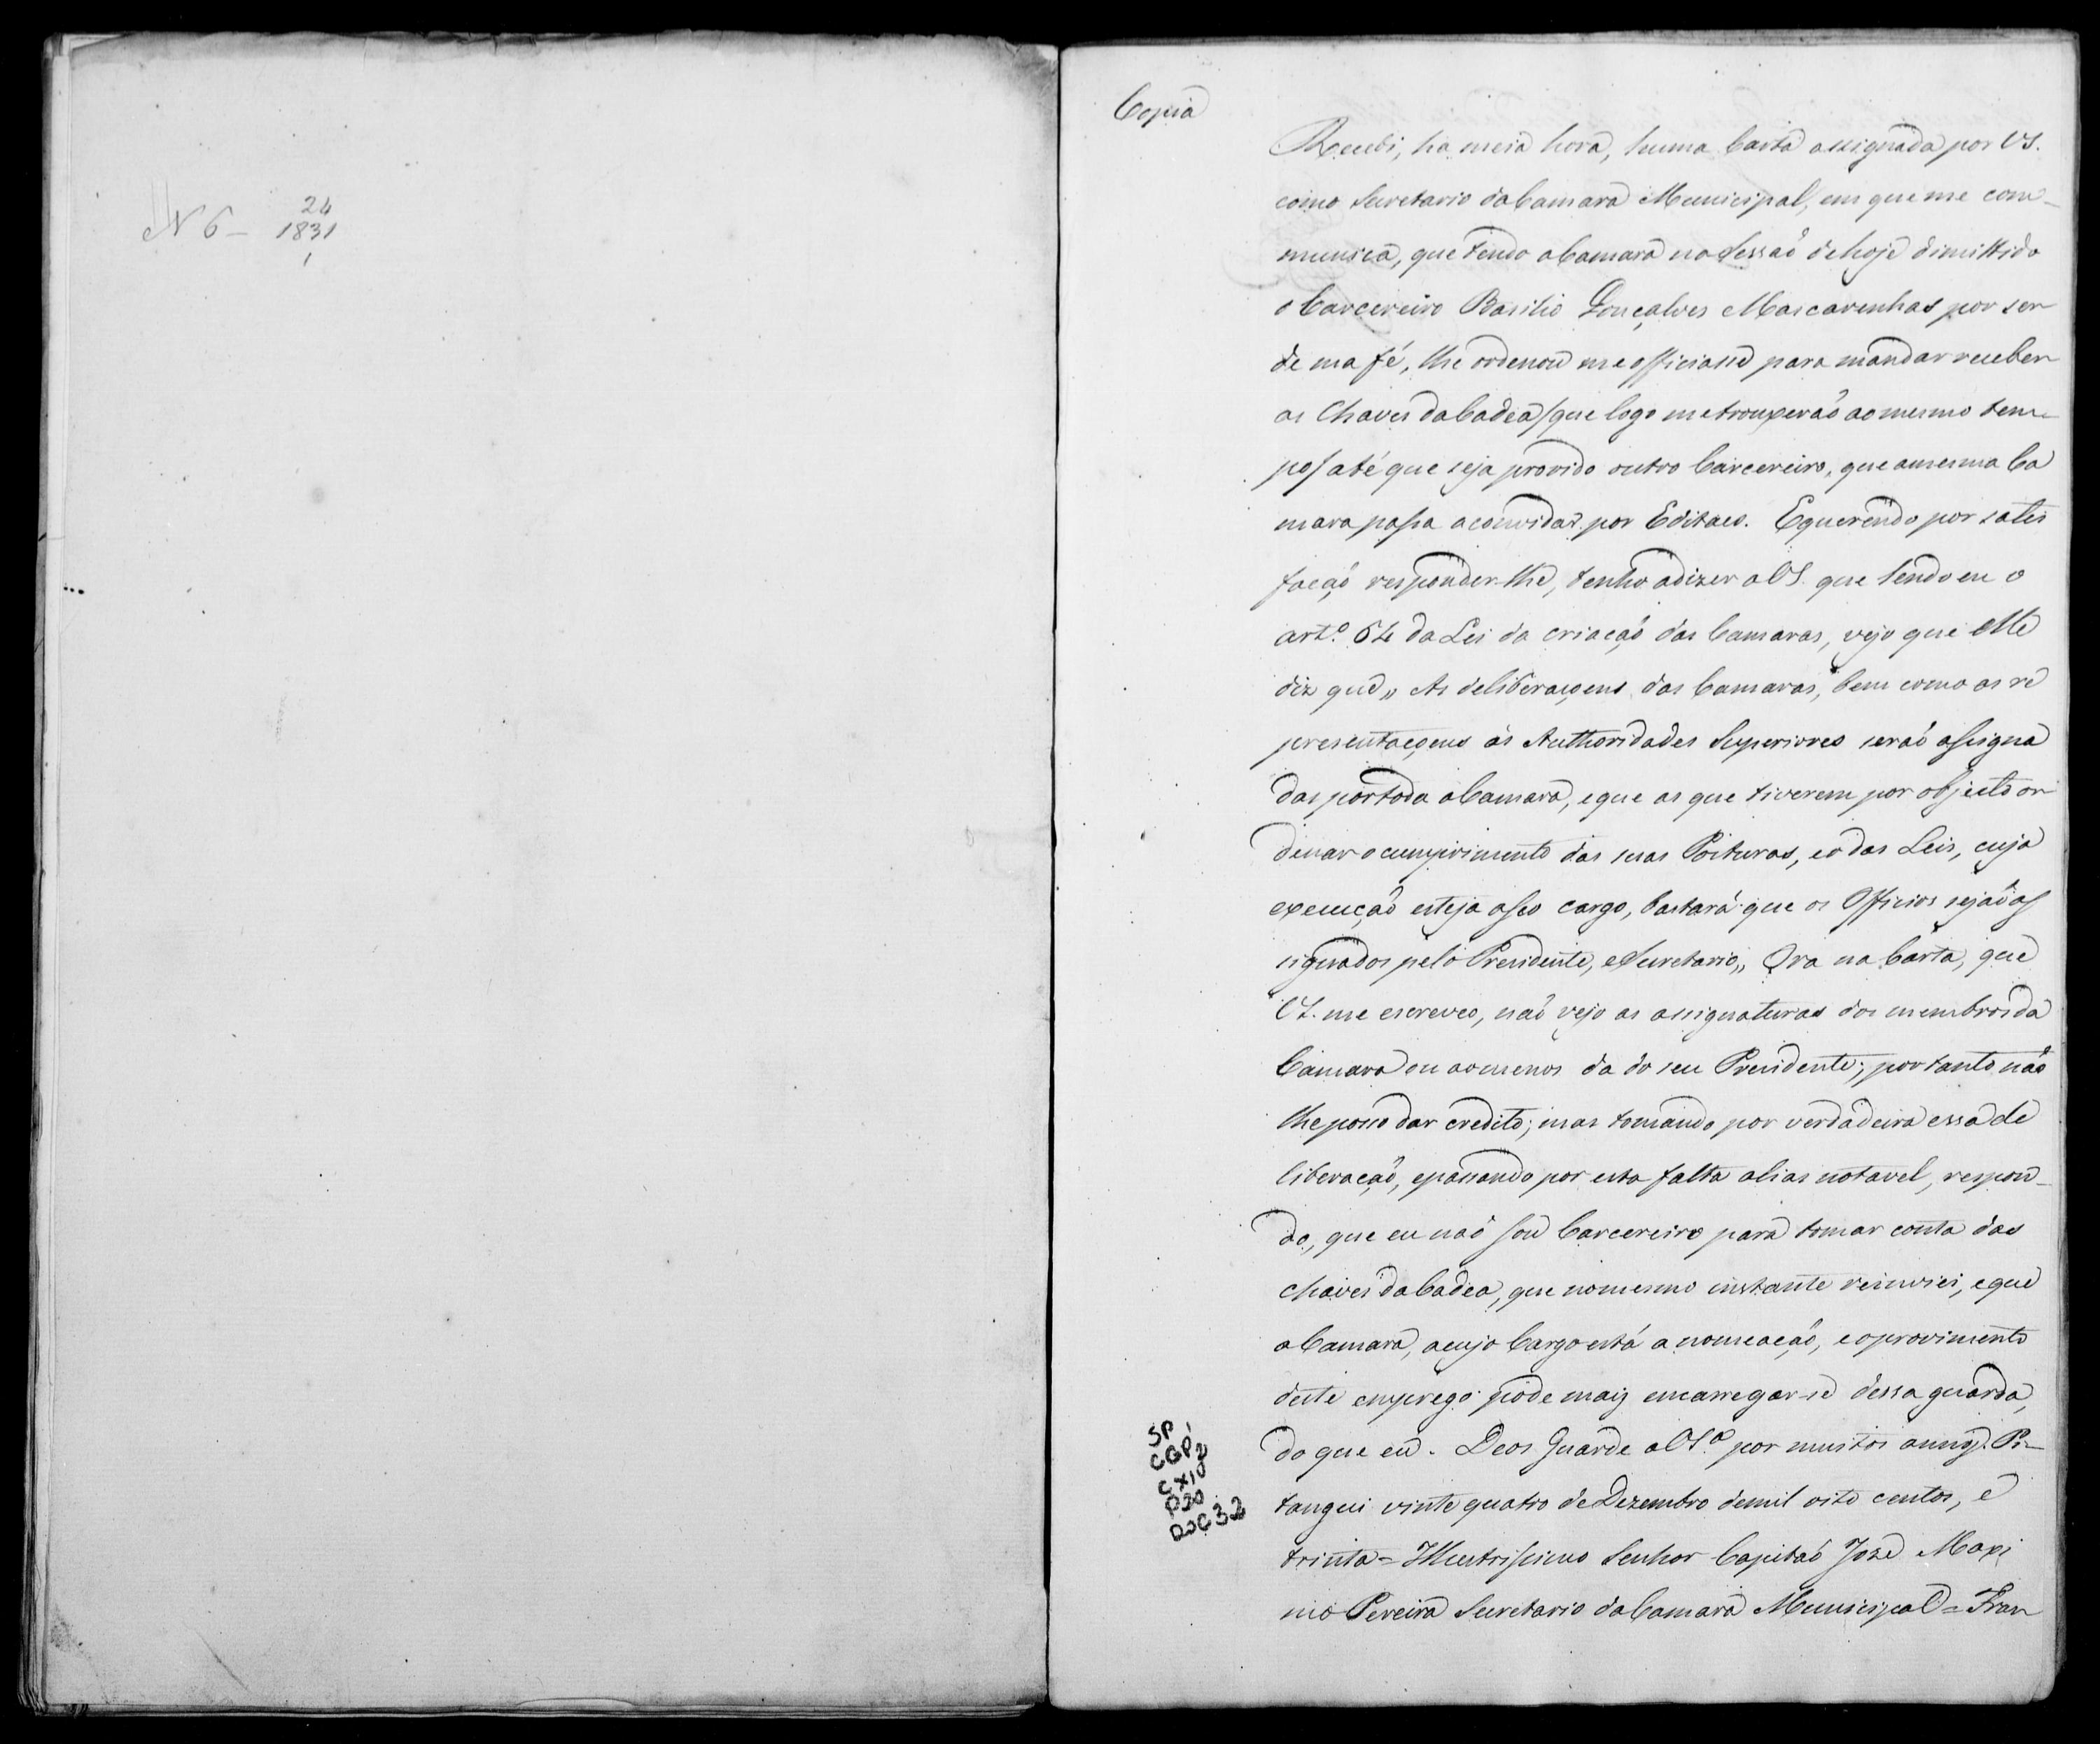 N 6 - 24
1831
1
Copia
Recebi, ha meia hora, huma Carta assignada por VS.
como Secretario da Camara Municipal, em que me com-
munica, que tendo a Camara na Sessaõ de hoje dimittido
o Carcereiro Basilio Gonçalves Mascarenhas por ser
de ma fé, lhe ordenou me officiasse para mandar receber
as Chaves da Cadea (que logo me trouxeraõ ao mesmo tem-
po) até que seja provido outro Carcereiro, que a mesma Ca
mara passa a convidar por Editaes. E querendo por satis
façaõ responder-lhe, tenho a dizer a VS. que lendo eu o
artº. 54 da Lei da criaçaõ das Camaras, vejo que elle
diz que „ As deliberaçoens das Camaras, bem como as re
presentaçoens ás Authoridades Superiores seraõ assigna
das por toda a Camara, e que as que tiverem por objecto or
denar o cumprimento das suas Posturas, e o das Leis, cuja
execuçaõ esteja a seo cargo, bastará que os Officios sejaõ as
signados pelo Presidente, e Secretario„ Ora na Carta, que
VS. me escreveo, naõ vejo as assignaturas dos membros da
Camara ou ao menos da do seu Presidente; por tanto naõ
lhe posso dar credito; mas tomando por verdadeira essa de
liberaçaõ, e passando por esta falta alias notavel, respon-
do, que eu naõ sou Carcereiro para tomar conta das
chaves da Cadea, que no mesmo instante reinviei, e que
a Camara, a cujo Cargo está a nomeaçaõ, e o provimento
deste emprego pode mais encarregar-se dessa guarda,
do que eu. Deos Guarde a VSª. por muitos annos. Pi-
tangui vinte quatro de Dezembro de mil oito centos, e
trinta = Illustrissimo Senhor Capitaõ Joze Maxi
mo Pereira Secretario da Camara Municipal = Fran
SP
CGP2
CX10
P20
DOC32